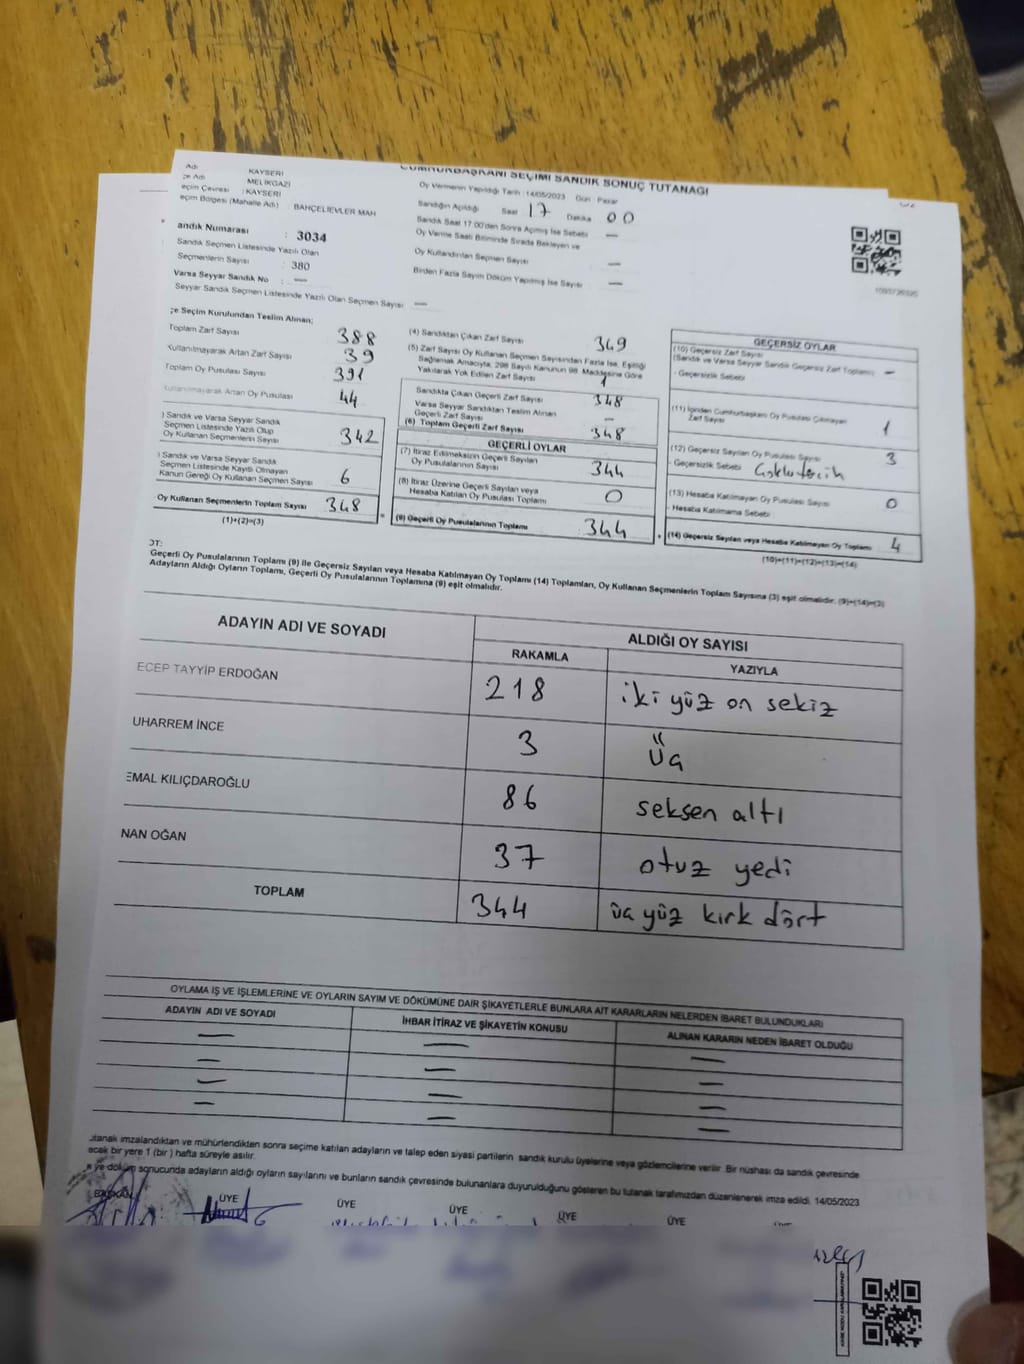 CUMHURBAŞKANI SEÇİMİ SANDIK SONUÇ TUTANAĞI
Adı KAYSERİ
çe Adı MELİKGAZİ
eçim Çevresi : KAYSERİ
eçim Bölgesi (Mahalle Adı) : BAHÇELİEVLER MAH
andık Numarası : 3034
Sandık Seçmen Listesinde Yazılı Olan
Seçmenlerin Sayısı : 380
Varsa Seyyar Sandık No : —
Seyyar Sandık Seçmen Listesinde Yazılı Olan Seçmen Sayısı —
Oy Vermenin Yapıldığı Tarih : 14/05/2023 Gün : Pazar
Sandığın Açıldığı Saat 17 Dakika 00
Sandık Saat 17:00'den Sonra Açılmış İse Sebebi —
Oy Verme Saati Bitiminde Sırada Bekleyen ve
Oy Kullandırılan Seçmen Sayısı —
Birden Fazla Sayım Döküm Yapılmış İse Sayısı —
çe Seçim Kurulundan Teslim Alınan;
Toplam Zarf Sayısı 388
Kullanılmayarak Artan Zarf Sayısı 39
Toplam Oy Pusulası Sayısı 391
Kullanılmayarak Artan Oy Pusulası 44
) Sandık ve Varsa Seyyar Sandık
Seçmen Listesinde Yazılı Olup
Oy Kullanan Seçmenlerin Sayısı 342
) Sandık ve Varsa Seyyar Sandık
Seçmen Listesinde Kayıtlı Olmayan
Kanun Gereği Oy Kullanan Seçmen Sayısı 6
Oy Kullanan Seçmenlerin Toplam Sayısı 348
(1)+(2)=(3)
(4) Sandıktan Çıkan Zarf Sayısı 349
(5) Zarf Sayısı Oy Kullanan Seçmen Sayısından Fazla İse, Eşitliği
Sağlamak Amacıyla, 298 Sayılı Kanunun 98. Maddesine Göre
Yakılarak Yok Edilen Zarf Sayısı 1
Sandıkta Çıkan Geçerli Zarf Sayısı 348
Varsa Seyyar Sandıktan Teslim Alınan
Geçerli Zarf Sayısı —
(6) Toplam Geçerli Zarf Sayısı 348
GEÇERLİ OYLAR
(7) İtiraz Edilmeksizin Geçerli Sayılan
Oy Pusulalarının Sayısı 344
(8) İtiraz Üzerine Geçerli Sayılan veya
Hesaba Katılan Oy Pusulası Toplamı 0
(9) Geçerli Oy Pusulalarının Toplamı 344
GEÇERSİZ OYLAR
(10) Geçersiz Zarf Sayısı
(Sandık ve Varsa Seyyar Sandık Geçersiz Zarf Toplamı) —
- Geçersizlik Sebebi
(11) İçinden Cumhurbaşkanı Oy Pusulası Çıkmayan
Zarf Sayısı 1
(12) Geçersiz Sayılan Oy Pusulası Sayısı 3
- Geçersizlik Sebebi
(13) Hesaba Katılmayan Oy Pusulası Sayısı 0
- Hesaba Katılmama Sebebi
(14) Geçersiz Sayılan veya Hesaba Katılmayan Oy Toplamı 4
(10)+(11)+(12)+(13)=(14)
OT:
Geçerli Oy Pusulalarının Toplamı (9) ile Geçersiz Sayılan veya Hesaba Katılmayan Oy Toplamı (14) Toplamları, Oy Kullanan Seçmenlerin Toplam Sayısına (3) eşit olmalıdır. (9)+(14)=(3)
Adayların Aldığı Oyların Toplamı, Geçerli Oy Pusulalarının Toplamına (9) eşit olmalıdır.
ADAYIN ADI VE SOYADI ALDIĞI OY SAYISI
RAKAMLA YAZIYLA
ECEP TAYYİP ERDOĞAN 218 iki yüz on sekiz
UHARREM İNCE 3 üç
EMAL KILIÇDAROĞLU 86 seksen altı
NAN OĞAN 37 otuz yedi
TOPLAM 344 üç yüz kırk dört
OYLAMA İŞ VE İŞLEMLERİNE VE OYLARIN SAYIM VE DÖKÜMÜNE DAİR ŞİKAYETLERLE BUNLARA AİT KARARLARIN NELERDEN İBARET BULUNDUKLARI
ADAYIN ADI VE SOYADI İHBAR İTİRAZ VE ŞİKAYETİN KONUSU ALINAN KARARIN NEDEN İBARET OLDUĞU
— — —
— — —
— — —
— — —
utanak imzalandıktan ve mühürlendikten sonra seçime katılan adayların ve talep eden siyasi partilerin sandık kurulu üyelerine veya gözlemcilerine verilir. Bir nüshası da sandık çevresinde
acak bir yere 1 (bir ) hafta süreyle asılır.
ve döküm sonucunda adayların aldığı oyların sayılarını ve bunların sandık çevresinde bulunanlara duyurulduğunu gösteren bu tutanak tarafımızdan düzenlenerek imza edildi. 14/05/2023
BAŞKAN ÜYE ÜYE ÜYE ÜYE ÜYE